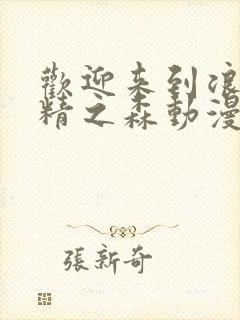 歡迎来到浪
精之森動漫
張新奇